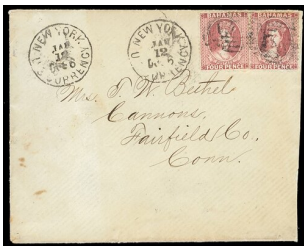 NEW YORK
JAN
12
U.S. CURRENCY
NEW YORK
JAN
12
U.S. CURRENCY
BAHAMAS BAHAMAS
FOUR PENCE FOUR PENCE
Mrs. T. W. Bethel
Cannons,
Fairfield Co.
Conn.